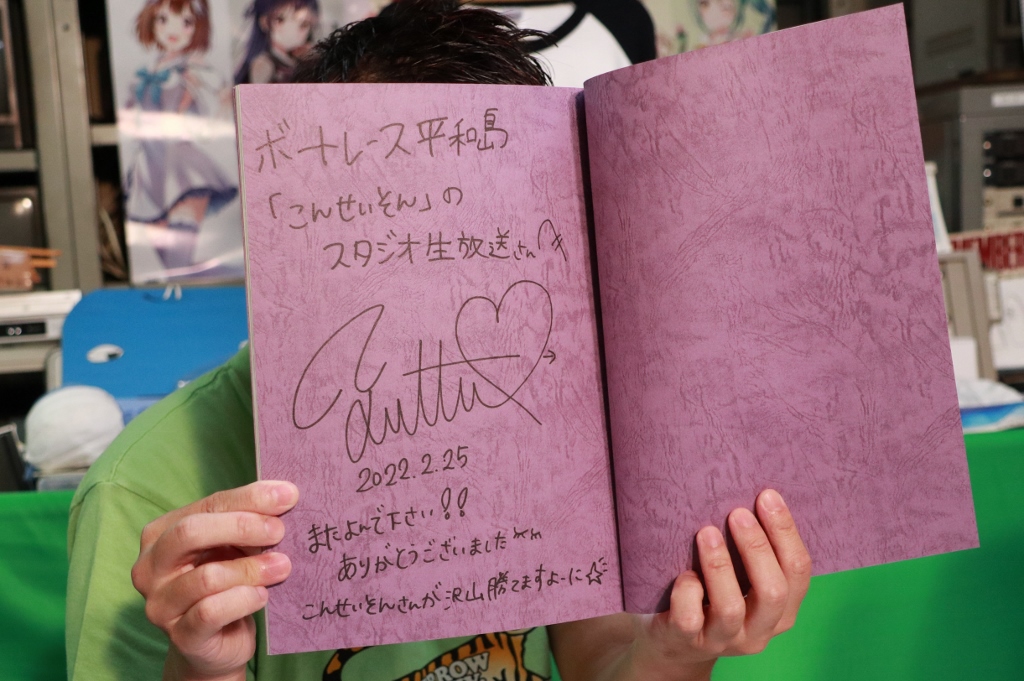 ボートレース平和島
「こんせいそん」の
スタジオ生放送さんへ
2022.2.25
またよんで下さい!!
ありがとうございました
こんせいそんさんが沢山勝てますよーに☆
MEMBER
ROW